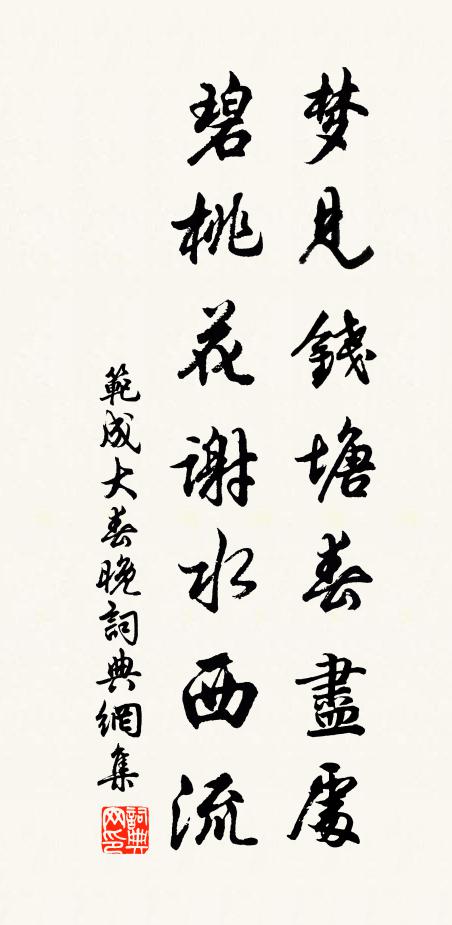 梦見錢塘春盡處
碧桃花謝水西流
範成大春晚詞典網集
詞典网印